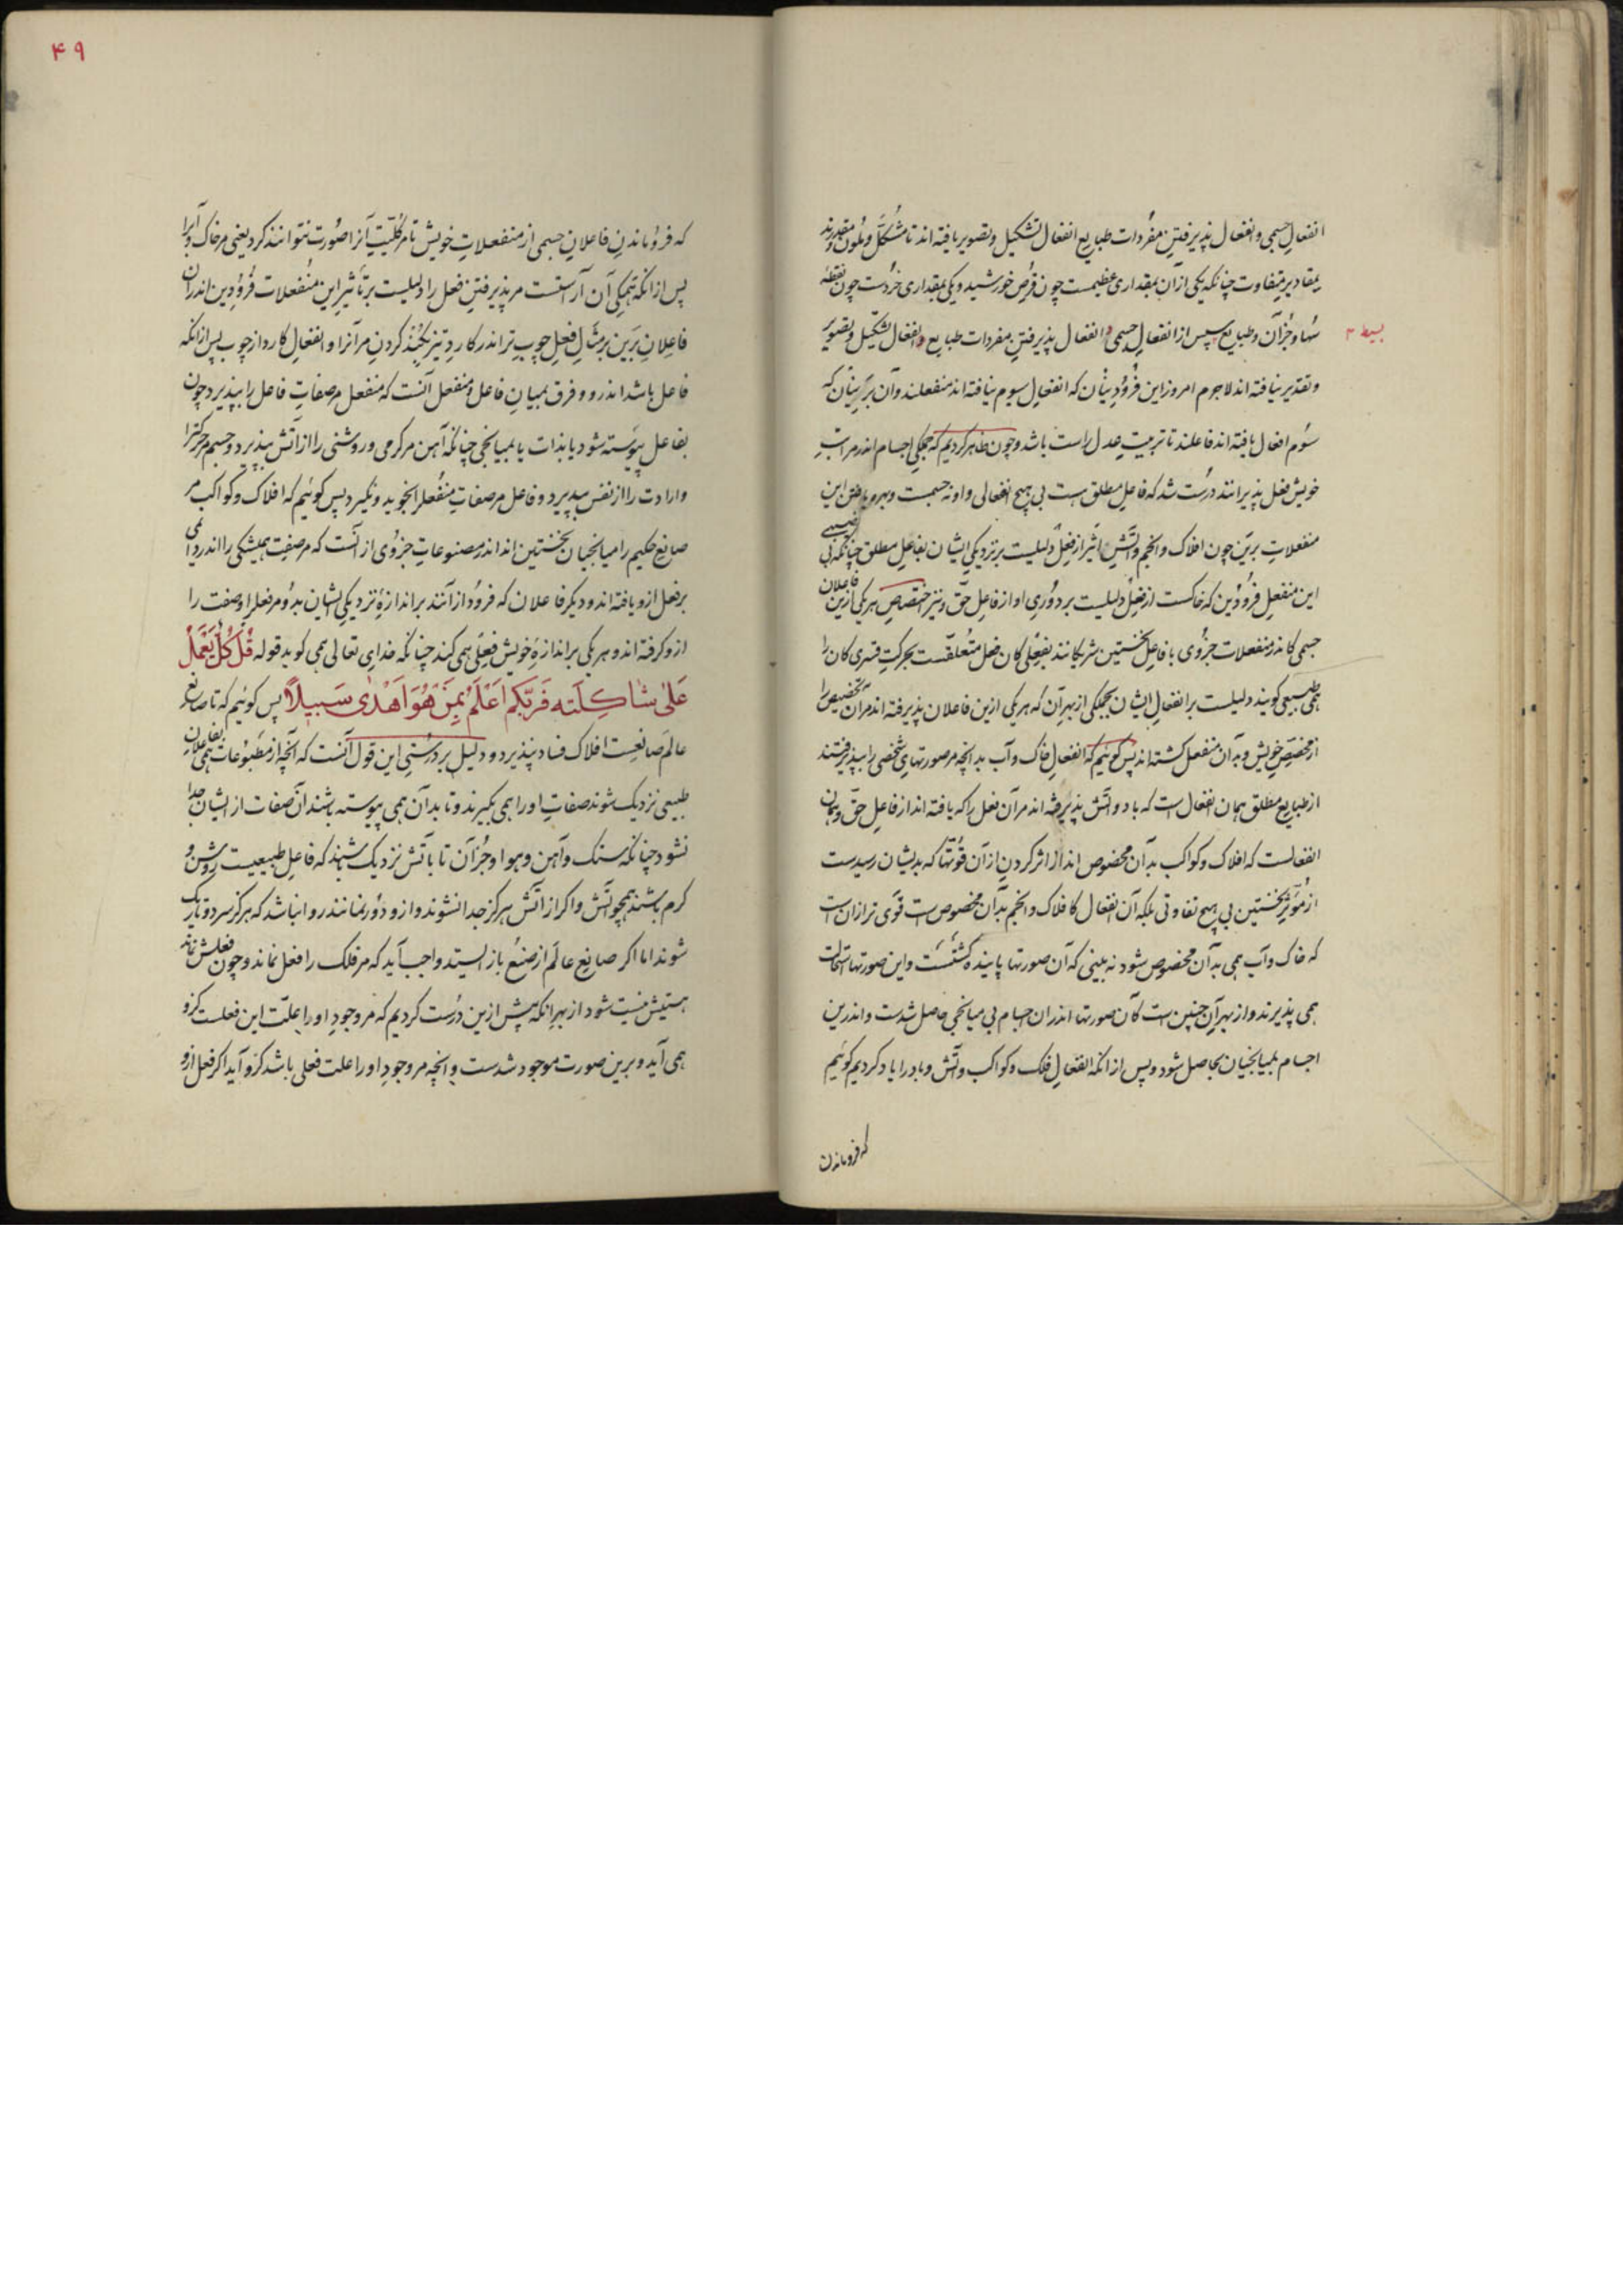 انفعالِ جسمی و انفعال پذیرفتنِ مفردات طبایع انفعال تشکیل و تصویر یافته‌اند تا مُشکّل و ملوّن و مقدرند
بمقادیر متفاوت چنانکه یکی از آن بمقداری عظیمست چون قرص خورشید و یکی بمقداری خردست چون نقطهٔ
سُها و جُز آن و طبایع سپس از انفعالِ جسمی و انفعال پذیرفتنِ مفردات طبایع و انفعال تشکیل و تصویر
بسیط
و تقدیر نیافته‌اند لاجرم امروز این فرودینان که انفعال سیوم نیافته‌اند منفعلند و آن برینان که
سوم انفعال یافته‌اند فاعلند تا ترتیب عدل راست باشد و چون ظاهر کردیم که جملگی اجسام اندر مراتبِ
خویش فعل پذیرانند درست شد که فاعل مطلق هست بی هیچ انفعالی و او نه جسمست و بهره یافتن این
منفعلاتِ برین چون افلاک و انجم و آتشِ اثیر از فعل دلیلست بر نزدیکیِ ایشان بفاعل مطلق چنانکه بی نصیبی
این منفعلِ فرودین که خاکست از فعل دلیلست بر دوریِ او از فاعلِ حقّ و نیز اختصاص هر یکی ازین فاعلان
جسمی کاندر منفعلات جزوی با فاعل نخستین شریکانند بفعلی کان فعل متعلّقست بحرکت قسری کان را
همی طبیعی گویند دلیلست بر انفعال ایشان بجملگی از بهر آن که هر یکی ازین فاعلان پذیرفته‌اند مر آن تخصیص را
از مخصّصِ خویش و بدان منفعل گشته‌اند پس گوئیم که انفعالِ خاک و آب بدانچه مر صورتهای شخصی را بپذیرفتند
از طبایع مطلق همان انفعال است که باد و آتش پذیرفته‌اند مر آن فعل را که یافته‌اند از فاعلِ حقّ و همان
انفعالست که افلاک و کواکب بدان مخصوص‌اند از اثر کردن از آن قوّتها که بدیشان رسیدست
از مؤثّرِ نخستین بی هیچ تفاوتی بلکه آن انفعال کافلاک و انجم بدان مخصوص است قوی تر از آن است
که خاک و آب همی بدان مخصوص شود نه بینی که آن صورتها پاینده گشتست و این صورتها استحالت
همی پذیرند و از بهر آن چنین است کان صورتها اندر آن اجسام بی میانجی حاصل شدست و اندرین
اجسام بمیانجیان حاصل شود و پس از آنکه انفعالِ فلک و کواکب و آتش و باد را یاد کردیم گوئیم
که فروماندن
۴۹
که فروماندنِ فاعلانِ جسمی از منفعلاتِ خویش تا مر کلیّتِ آنرا صورت نتوانند کرد یعنی مر خاک و آب را
پس از آنکه همگی آن آراستست مر پذیرفتنِ فعل را دلیلست بر تأثیرِ این منفعلات فرودین اندر آن
فاعلانِ برین بر مثالِ فعلِ چوبِ تر اندر کارد تیز بکُند کردنِ مر آنرا و انفعالِ کارد از چوب پس از آنکه
فاعل باشد اندرو و فرق بمیانِ فاعل و منفعل آنست که منفعل مر صفاتِ فاعل را بپذیرد چون
بفاعل پیوسته شود یا بذات یا بمیانجی چنانکه آهن مر گرمی و روشنی را از آتش بپذیرد و جسم مر حرکت را
و ارادت را از نفس بپذیرد و فاعل مر صفاتِ منفعل را نجوید و نگیرد پس گوئیم که افلاک و کواکب مر
صانعِ حکیم را میانجیان نخستین‌اند اندر مصنوعاتِ جزوی از آنست که مر صفتِ همیشگی را اندر دائمی
بر فعل ازو یافته‌اند و دیگر فاعلان که فرود از آنند بر اندازهٔ نزدیکی ایشان بدو مر فعل او صفت را
ازو گرفته‌اند و هر یکی بر اندازهٔ خویش فعلی همی کنند چنانکه خدای تعالی همی گوید قوله قُل کُلٌّ یَعْمَلُ
عَلیٰ شاکِلَته فَرَبّکم اَعْلَمُ بِمَنْ هُوَ اَهْدیٰ سَبیلاً پس گوئیم که تا صانع
عالم صانعست افلاک فساد نپذیرد و دلیل بر درستی این قول آنست که آنچه از مطبوعات همی بفاعلانِ
طبیعی نزدیک شوند صفاتِ او را همی بگیرند و تا بدان همی پیوسته باشند آن صفات از ایشان جدا
نشود چنانکه سنگ و آهن و هوا و جُز آن تا باتش نزدیک باشند که فاعل طبیعیست روشن و
گرم باشند همچو آتش و اگر از آتش هرگز جدا نشوند و ازو دور نمانند روا نباشد که هرگز سرد و تاریک
شوند اما اگر صانعِ عالم از صنع باز ایستد واجب آید که مر فلک را فعل نماند و چون فعلش نماند
هستیش نیست شود از بهر آنکه پیش ازین درست کردیم که مر وجودِ او را علّت این فعلست کزو
همی آید و برین صورت موجود شدست و آنچه مر وجودِ او را علت فعلی باشد کزو آید اگر فعل ازو